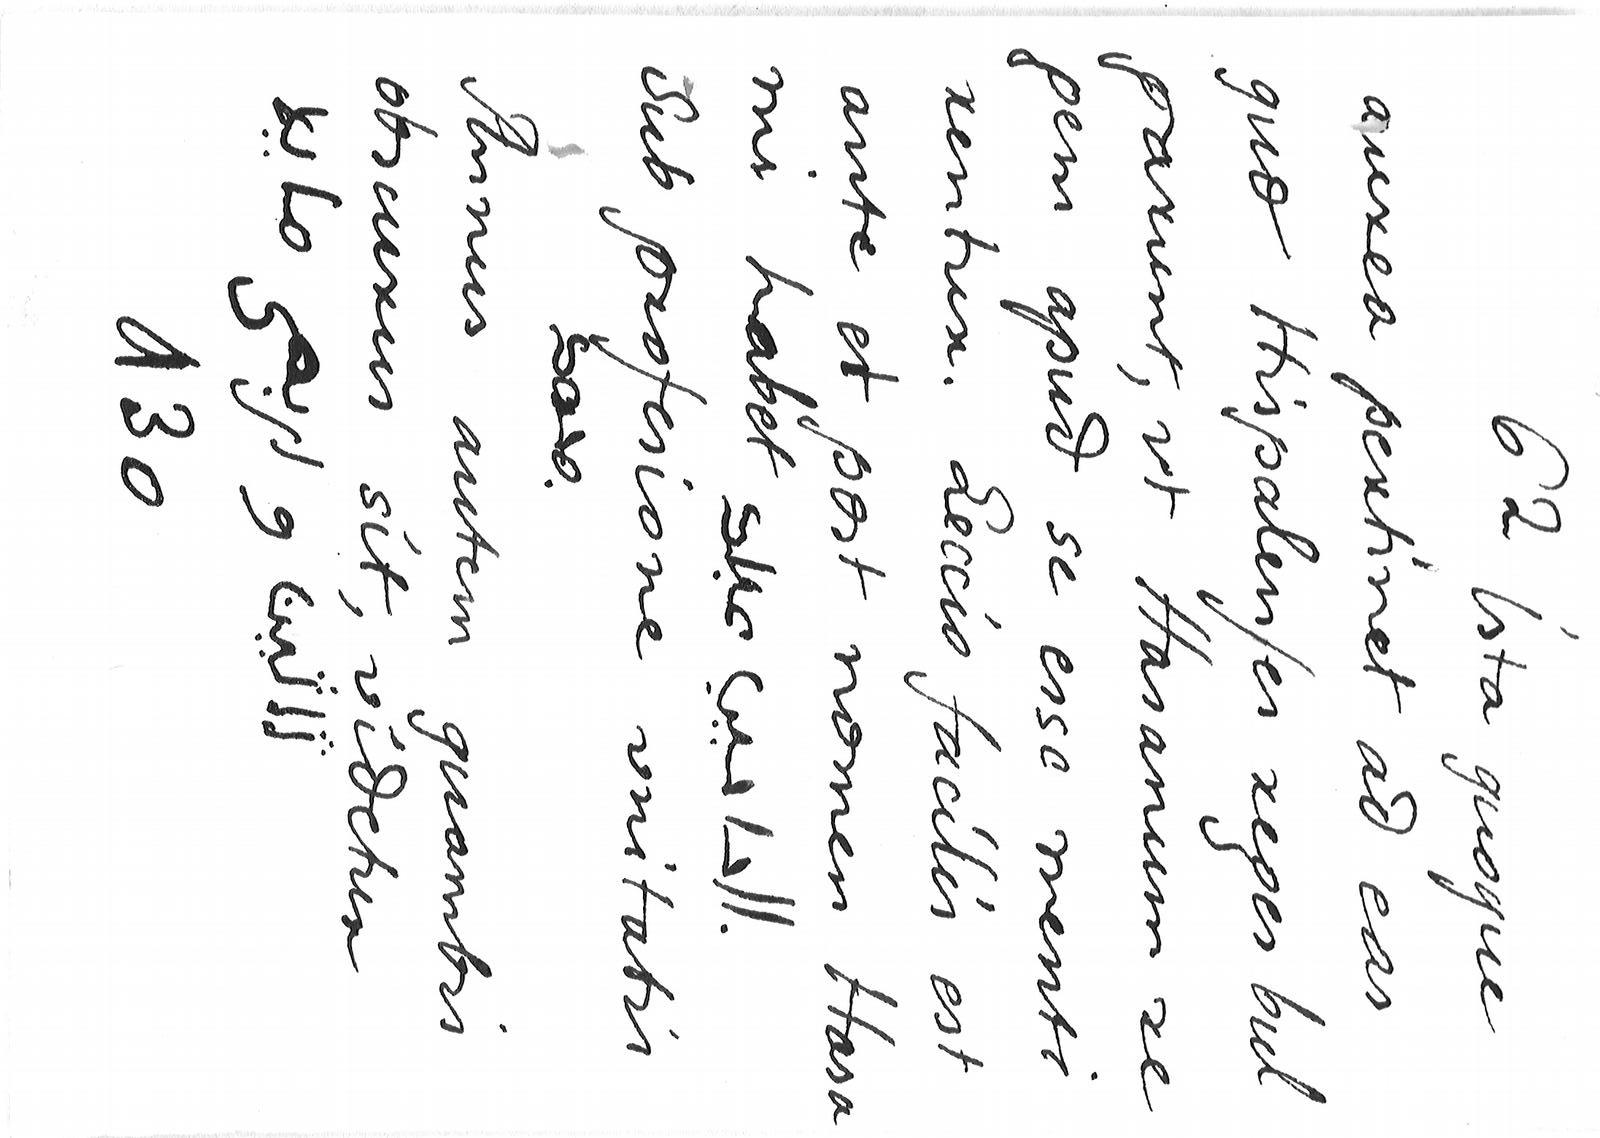 62 ista quoque
aurea pertinet ad eas
quas Hispalenses reges vul
garunt, vt Hasanum re
gem apud se esse menti
rentur. Leccio facilis est
ante et post nomen Hasa
ni habet الحاجب
Sub profesione unitatis
Annus autem quamvis
obscurus sit, videtur
130